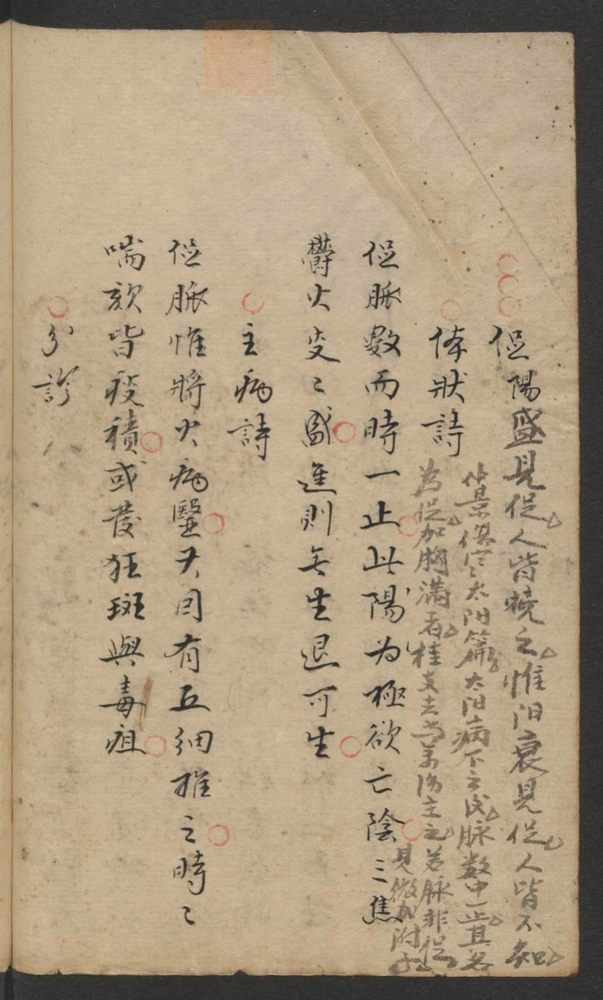 促陽盛見促人皆曉之惟阳衰見促人皆不知
太阳篇太阳病下之後脉数中一止其名
為促加胸滿者桂支去芍薬湯主之若脉非促
見微加附子
体状詩
促脉數而時一止此陽为極欲亡陰三焦
欝火炎〻盛進則無生退可生
主病詩
促脉惟將火病醫其因有五細推之時〻
喘欬皆痰積或發狂斑與毒疽
分診